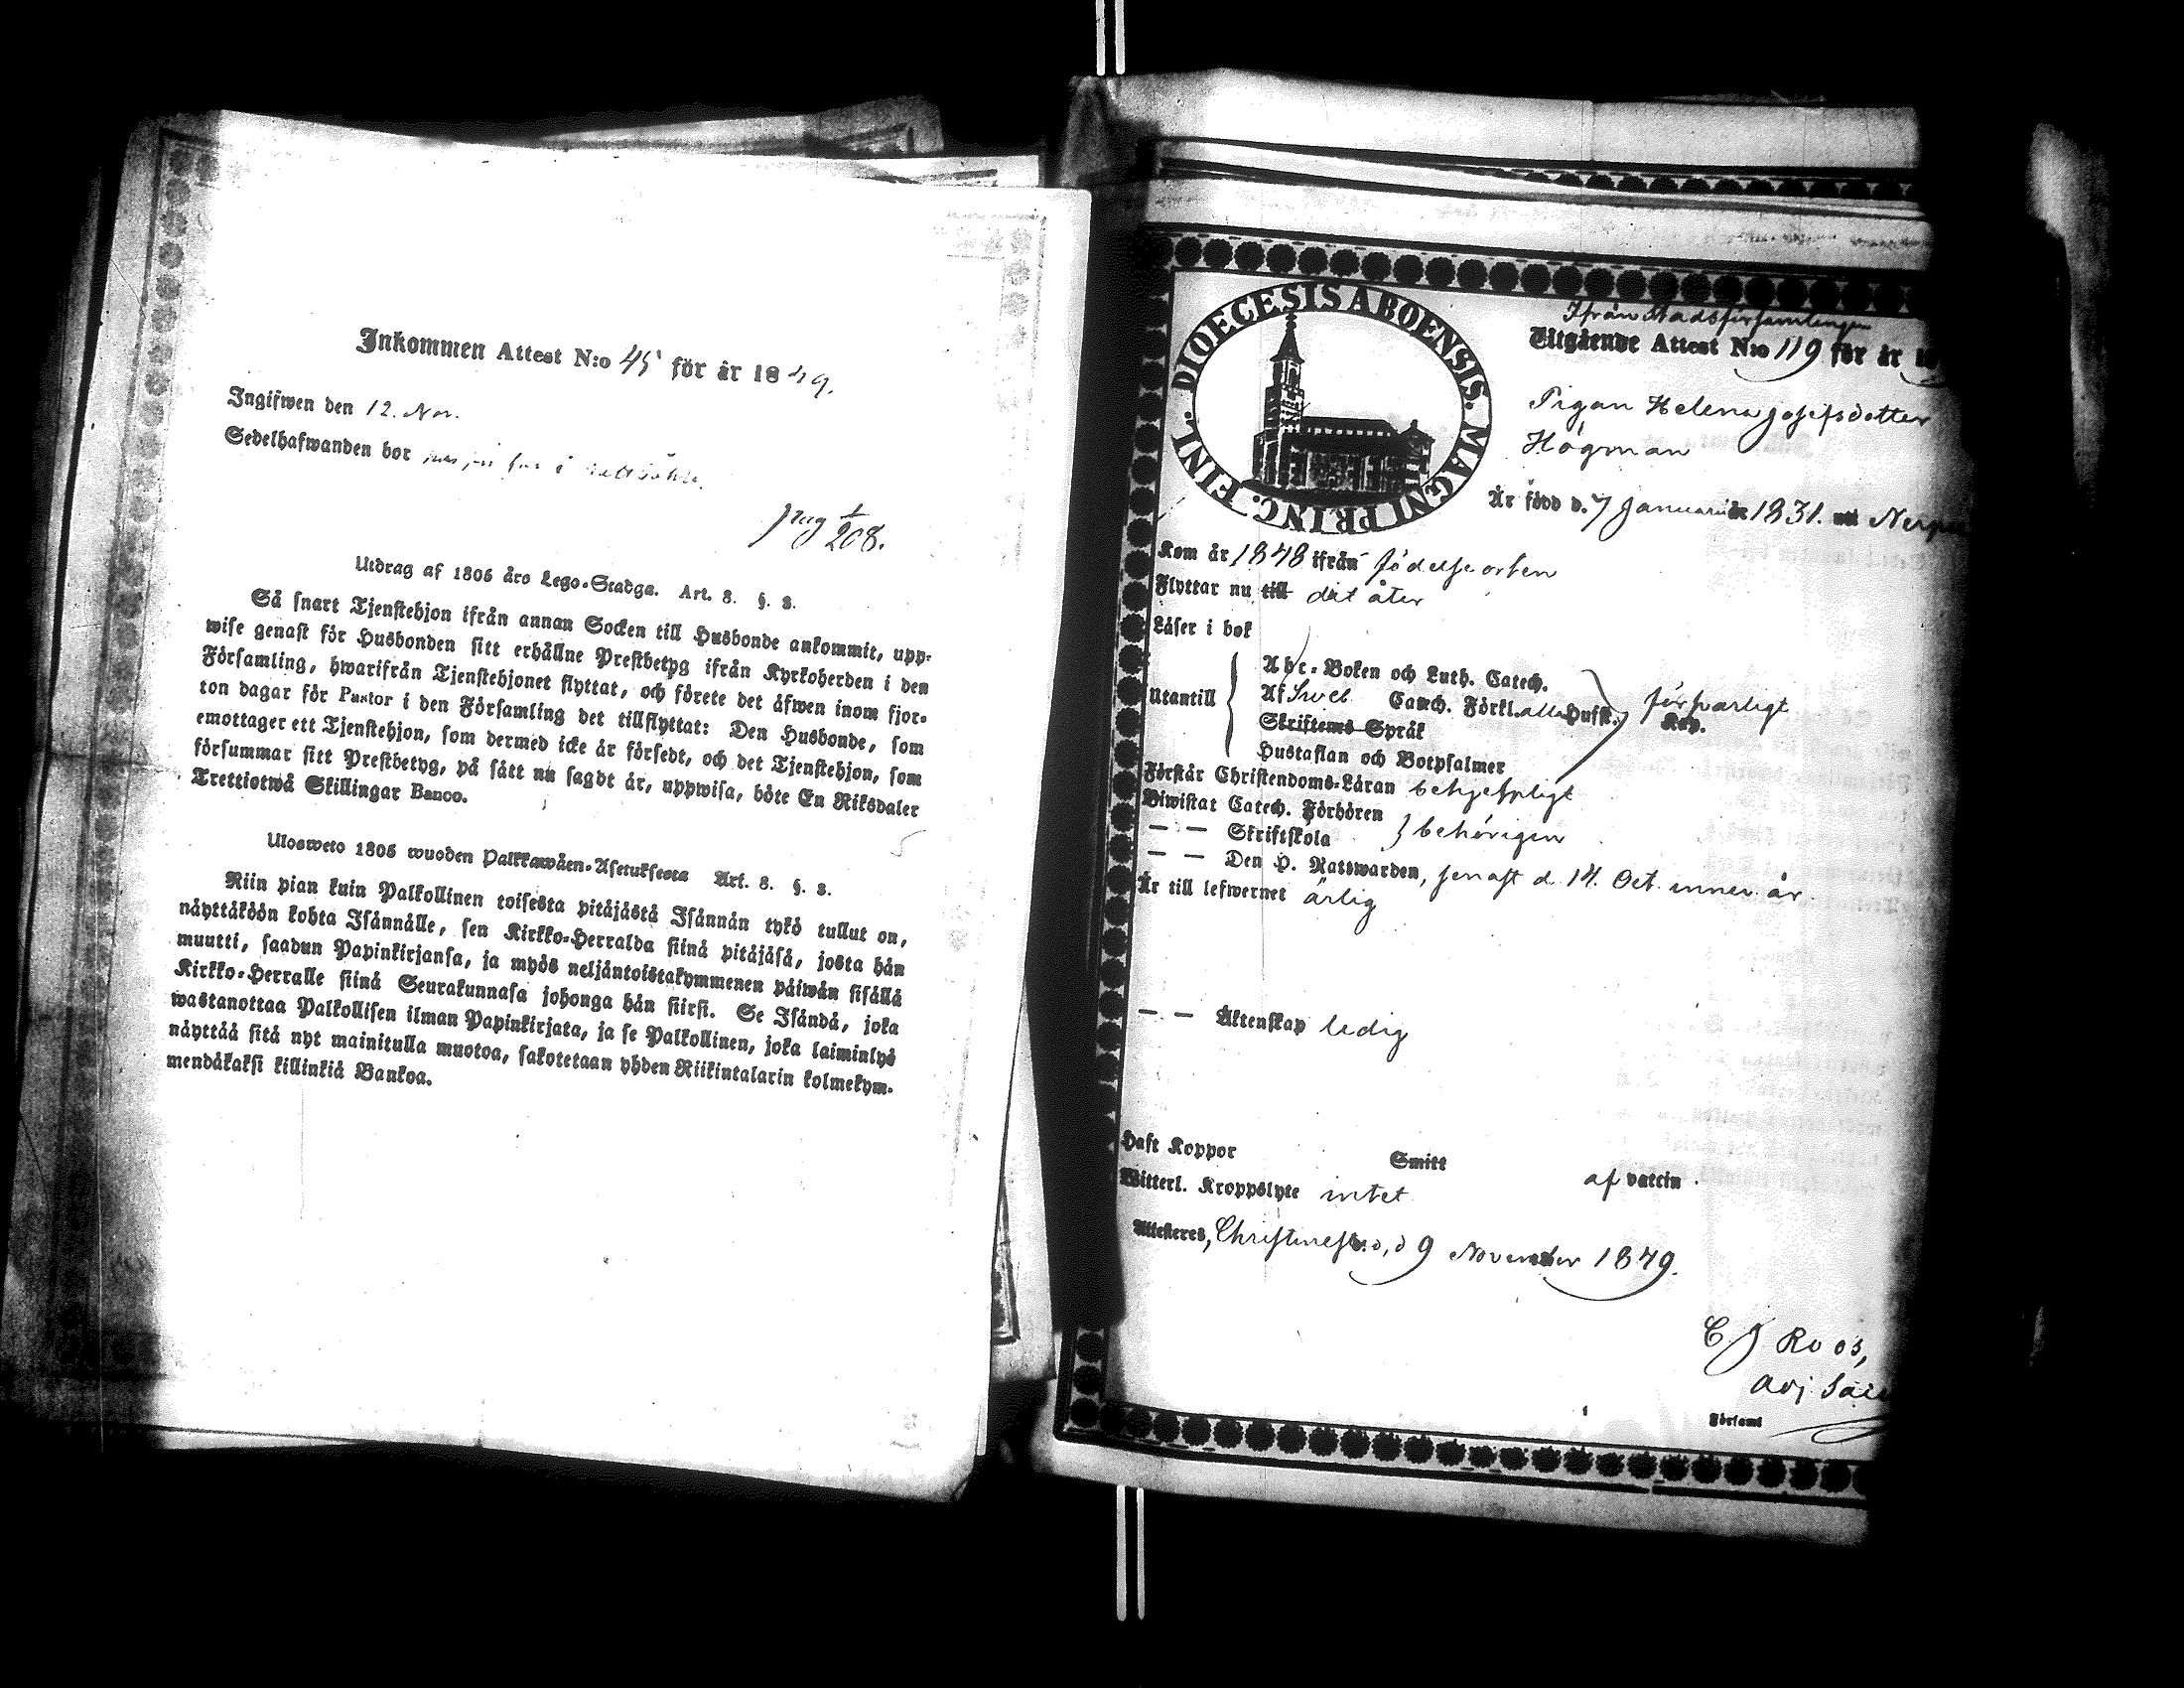 Inkommen Attest N:o 45 för år 1849.
Ingifwen den 12. Nov.
Sedelhafwanden bor
pag 208.
Utdrag af 1805 års Lego-Stadga. Art. 8. §. 8.
Så snart Tjenstehjon ifrån annan Socken till Husbonde ankommit, upp-
wise genast för Husbonden sitt erhållne Prestbetyg ifrån Kyrkoherden i den
Församling, hwarifrån Tjenstehjonet flyttat, och förete det äfwen inom fjor-
ton dagar för Pastor i den Församling det tillflyttat: Den Husbonde, som
emottager ett Tjenstehjon, som dermed icke är försedt, och det Tjenstehjon, som
försummar sitt Prestbetyg, på sätt nu sagdt är, uppwisa, böte En Riksdaler
Trettiotwå Skillingar Banco.
Ulosweto 1805 wuoden Palkkawäen-Asetuksesta Art. 8. §. 8.
Niin pian kuin Palkollinen toisesta pitäjästä Isännän tykö tullut on,
näyttäköön kohta Isännälle, sen Kirkko-Herralda siinä pitäjäsä, josta hän
muutti, saadun Papinkirjansa, ja myös neljäntoistakymmenen päiwän sisällä
Kirkko-Herralle siinä Seurakunnasa johonga hän siirsi. Se Isändä, joka
wastanottaa Palkollisen ilman Papinkirjata, ja se Palkollinen, joka laiminlyö
näyttää sitä nyt mainitulla muotoa, sakotetaan yhden Riikintalarin kolmekym-
mendäkaksi killinkiä Bankoa.
DIOECESIS ABOENSIS. MAGNI PRINC. FINL.
Ifrån Stadsförsamlingen
Utgående Attest N:o 119 för år
Pigan Helena Josefsdotter
Högman
Är född d. 7 Januarii år 1831. uti
Kom år 1848 ifrån födelseorten
Flyttar nu till dit åter
Läser i bok
Utantill
Abc-Boken och Luth. Catech.
Af Sveb. Catech. Förkl. alla Hufst. försvarligt
Kap.
Skriftems Språk
Hustaflan och Botpsalmer
Förstår Christendoms-Läran
Biwistat Catech. Förhören
— — Skriftskola } behörigen
— — Den H. Nattwarden, senast d. 14. Oct. inner. år
Är till lefwernet ärlig
— — Äktenskap ledig
Haft Koppor Smitt af vaccin
Witterl. Kroppslyte intet
Attesteres, Christinestad, d 9 November 1849.
C J Roos,
Adj
Församl